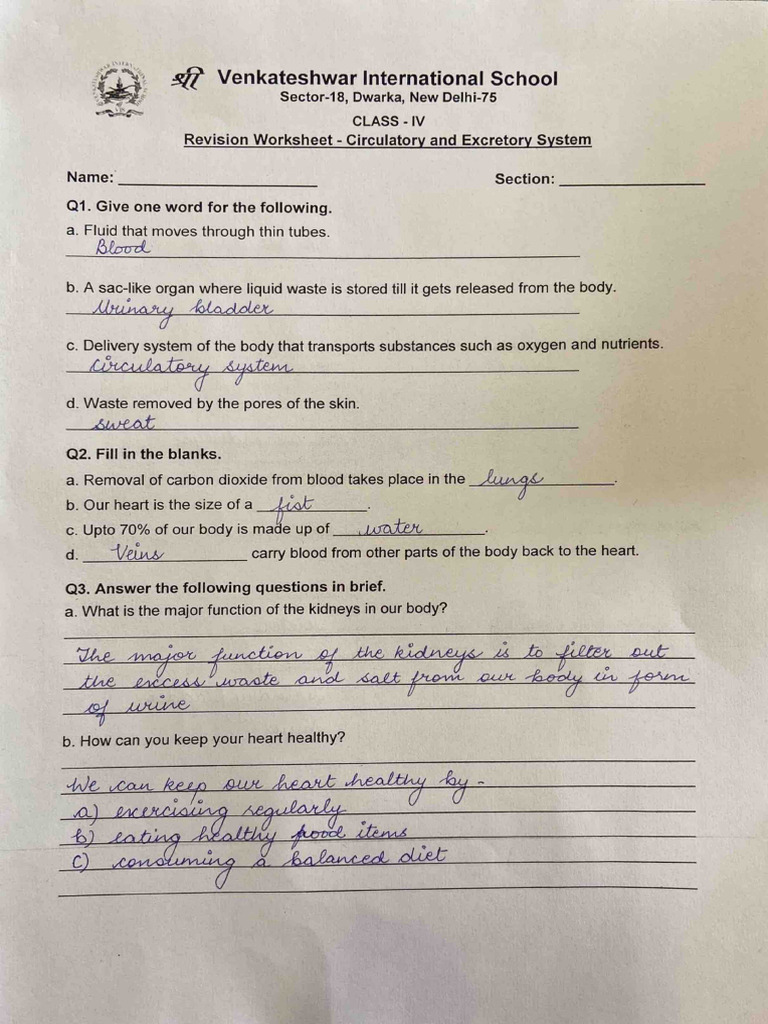 श्री Venkateshwar International School
Sector-18, Dwarka, New Delhi-75
CLASS - IV
Revision Worksheet - Circulatory and Excretory System
Name: ____________________ Section: ____________________
Q1. Give one word for the following.
a. Fluid that moves through thin tubes.
Blood
b. A sac-like organ where liquid waste is stored till it gets released from the body.
Urinary bladder
c. Delivery system of the body that transports substances such as oxygen and nutrients.
Circulatory system
d. Waste removed by the pores of the skin.
sweat
Q2. Fill in the blanks.
a. Removal of carbon dioxide from blood takes place in the lungs.
b. Our heart is the size of a fist.
c. Upto 70% of our body is made up of water.
d. Veins carry blood from other parts of the body back to the heart.
Q3. Answer the following questions in brief.
a. What is the major function of the kidneys in our body?
The major function of the kidneys is to filter out
the excess waste and salt from our body in form
of urine
b. How can you keep your heart healthy?
We can keep our heart healthy by -
a) exercising regularly
b) eating healthy food items
c) consuming a balanced diet